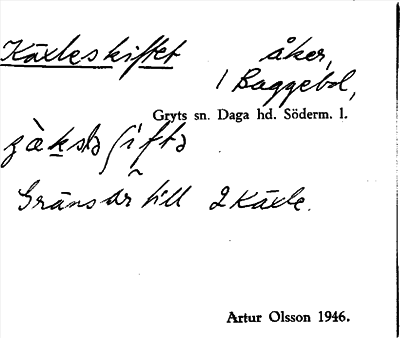 Käxleskiftet åker,
1 Baggebol,
Gryts sn. Daga hd. Söderm. l.
Gränsar till 2 Käxle.
Artur Olsson 1946.